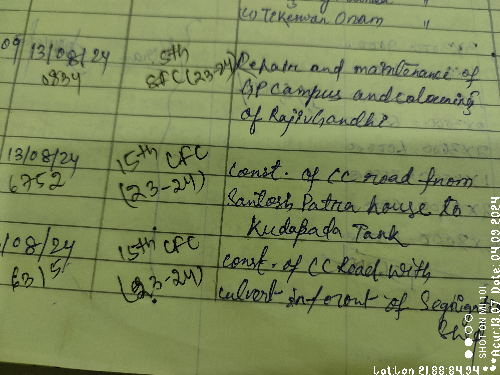 to Tekerwan Onam "
09 13/08/24 5th Repair and maintenance of
0834 SFC (23-24) GP Campus and colouring
of Rajiv Gandhi
13/08/24 15th CFC const. of CC road from
6752 (23-24) Santosh Patra house to
Kudapada Tank
/08/24 15th CFC const. of CC Road with
6315 (23-24) culvert infront of
SHOT ON MI 10I
Date 04 09 2024